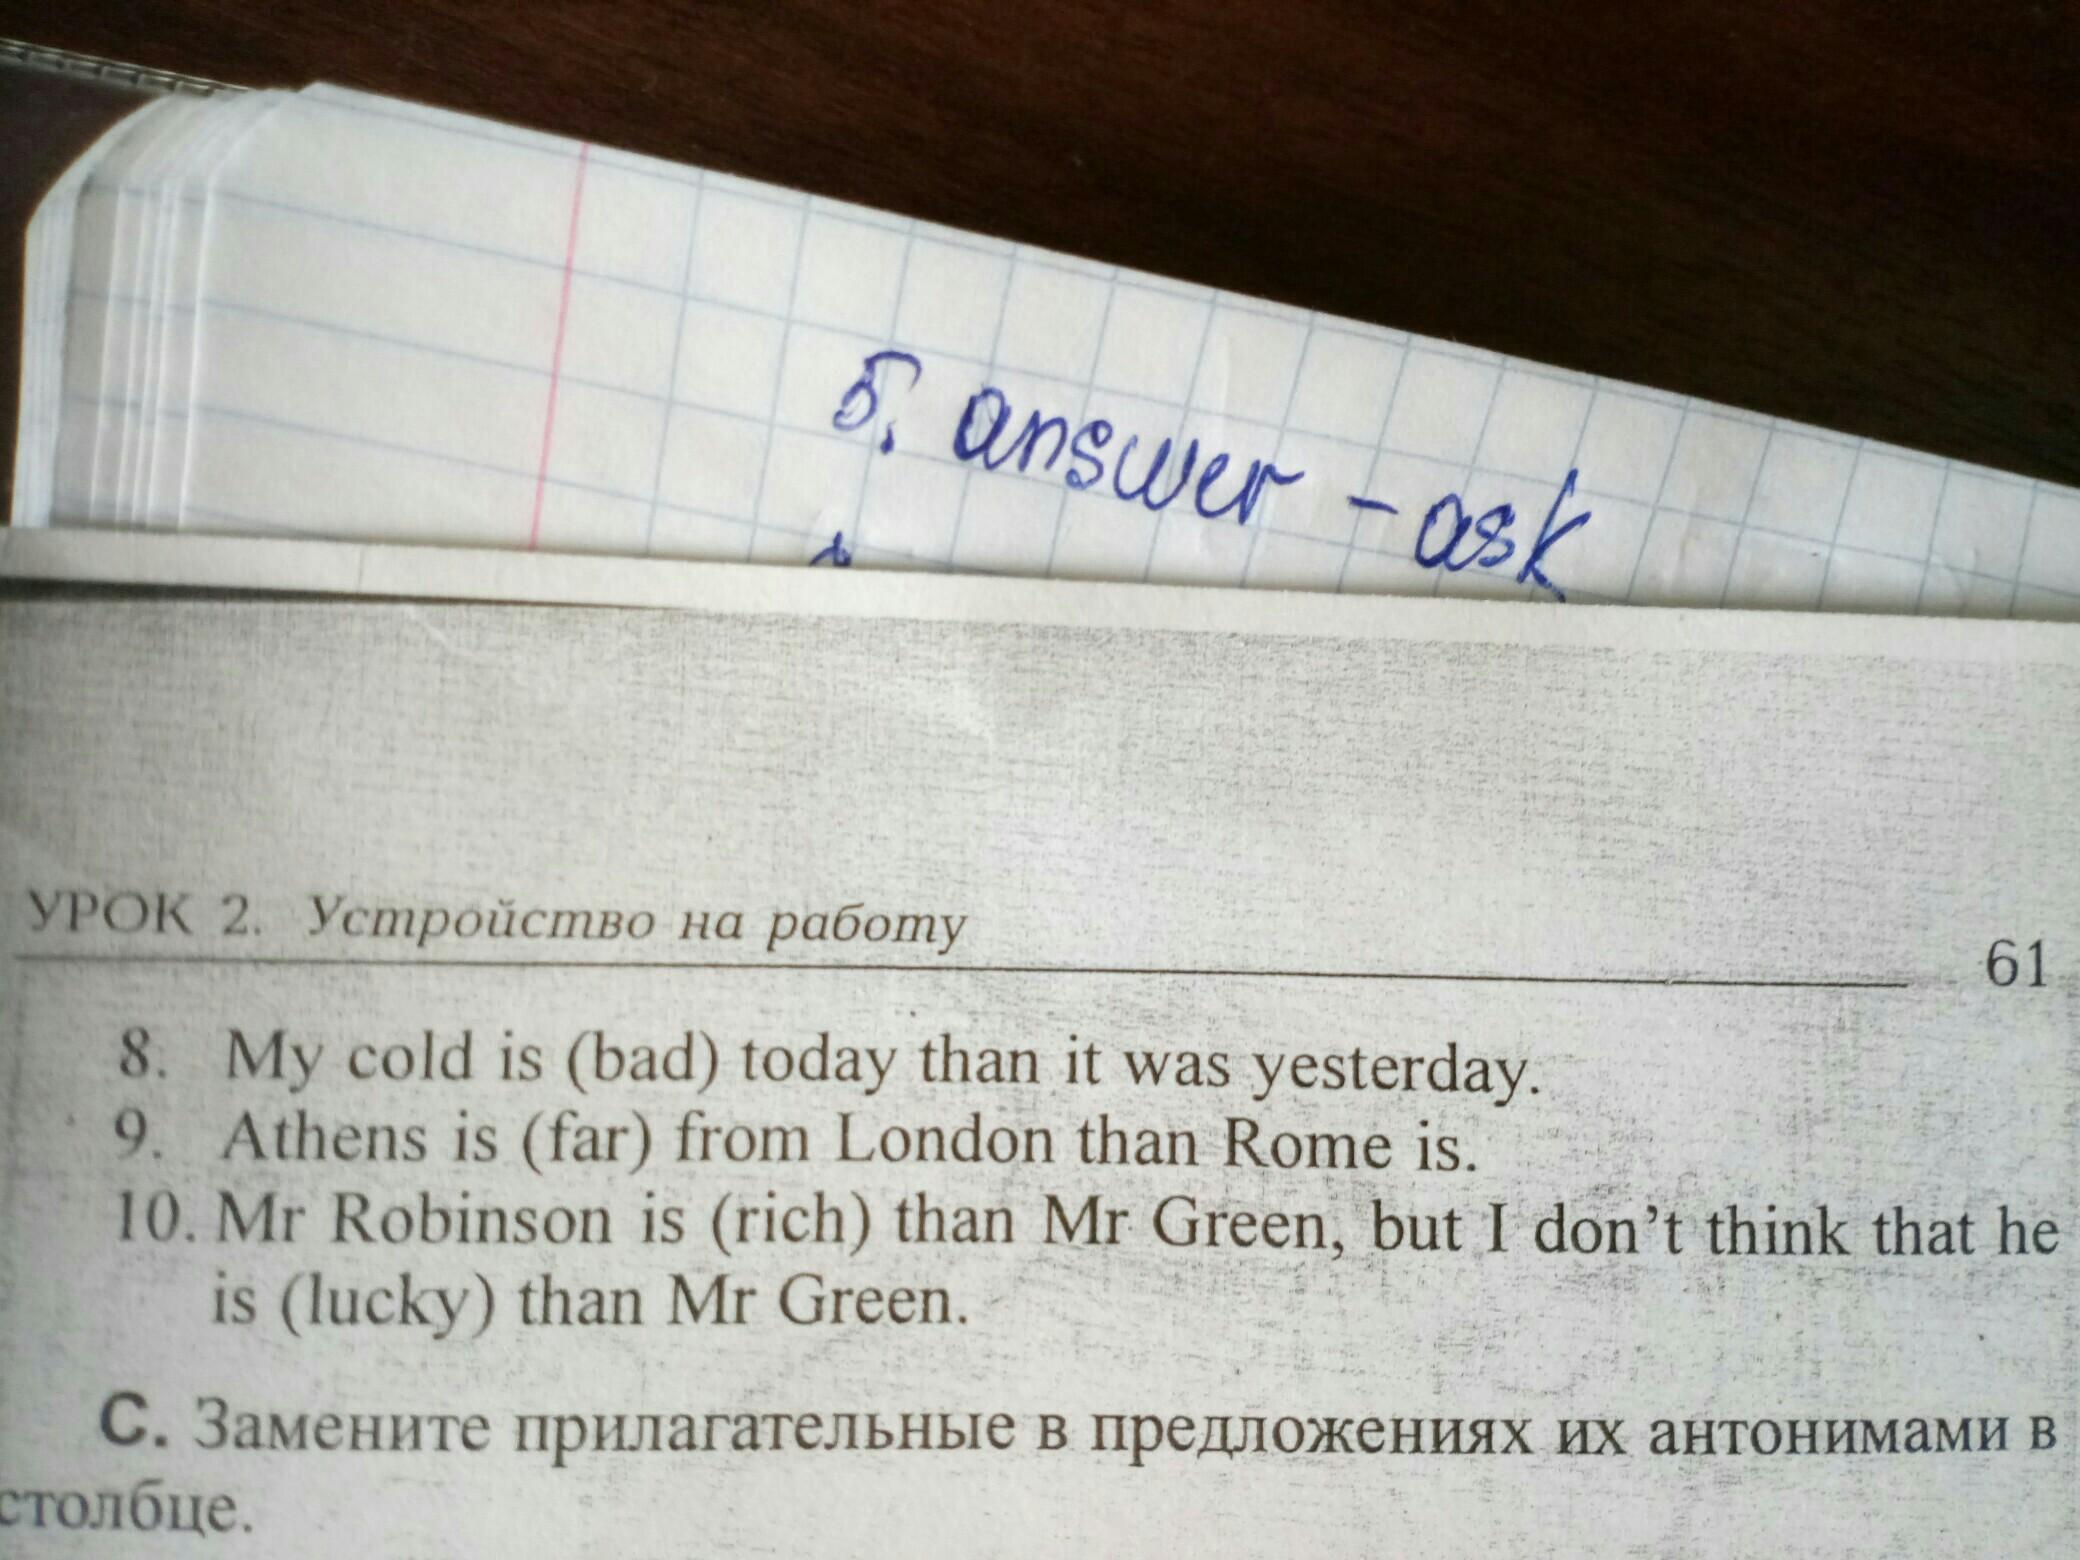 5. answer - ask
УРОК 2. Устройство на работу
61
8. My cold is (bad) today than it was yesterday.
9. Athens is (far) from London than Rome is.
10. Mr Robinson is (rich) than Mr Green, but I don't think that he
is (lucky) than Mr Green.
С. Замените прилагательные в предложениях их антонимами в
столбце.